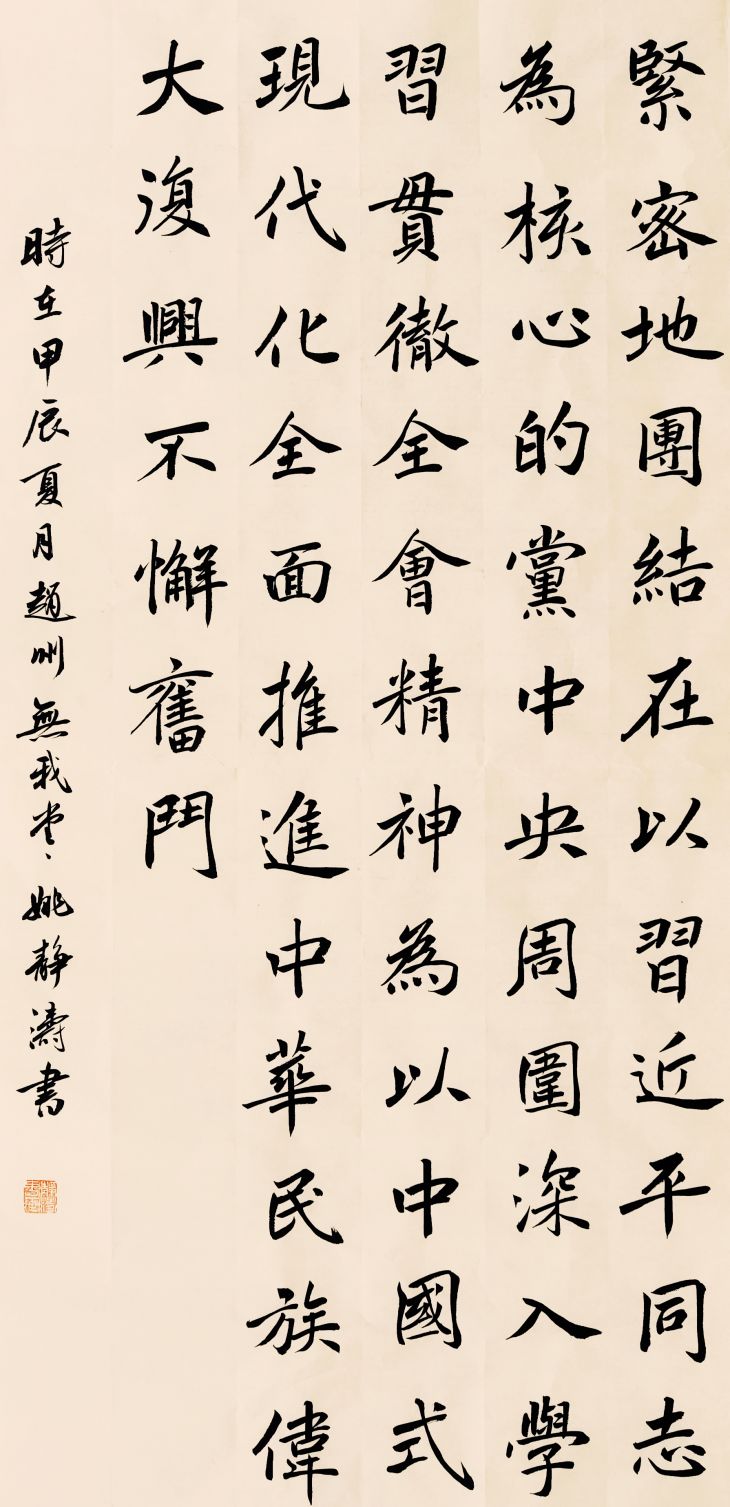 緊密地團結在以習近平同志
為核心的黨中央周圍深入學
習貫徹全會精神為以中國式
現代化全面推進中華民族偉
大復興不懈奮鬥
時在甲辰夏月趙州無我堂姚靜濤書